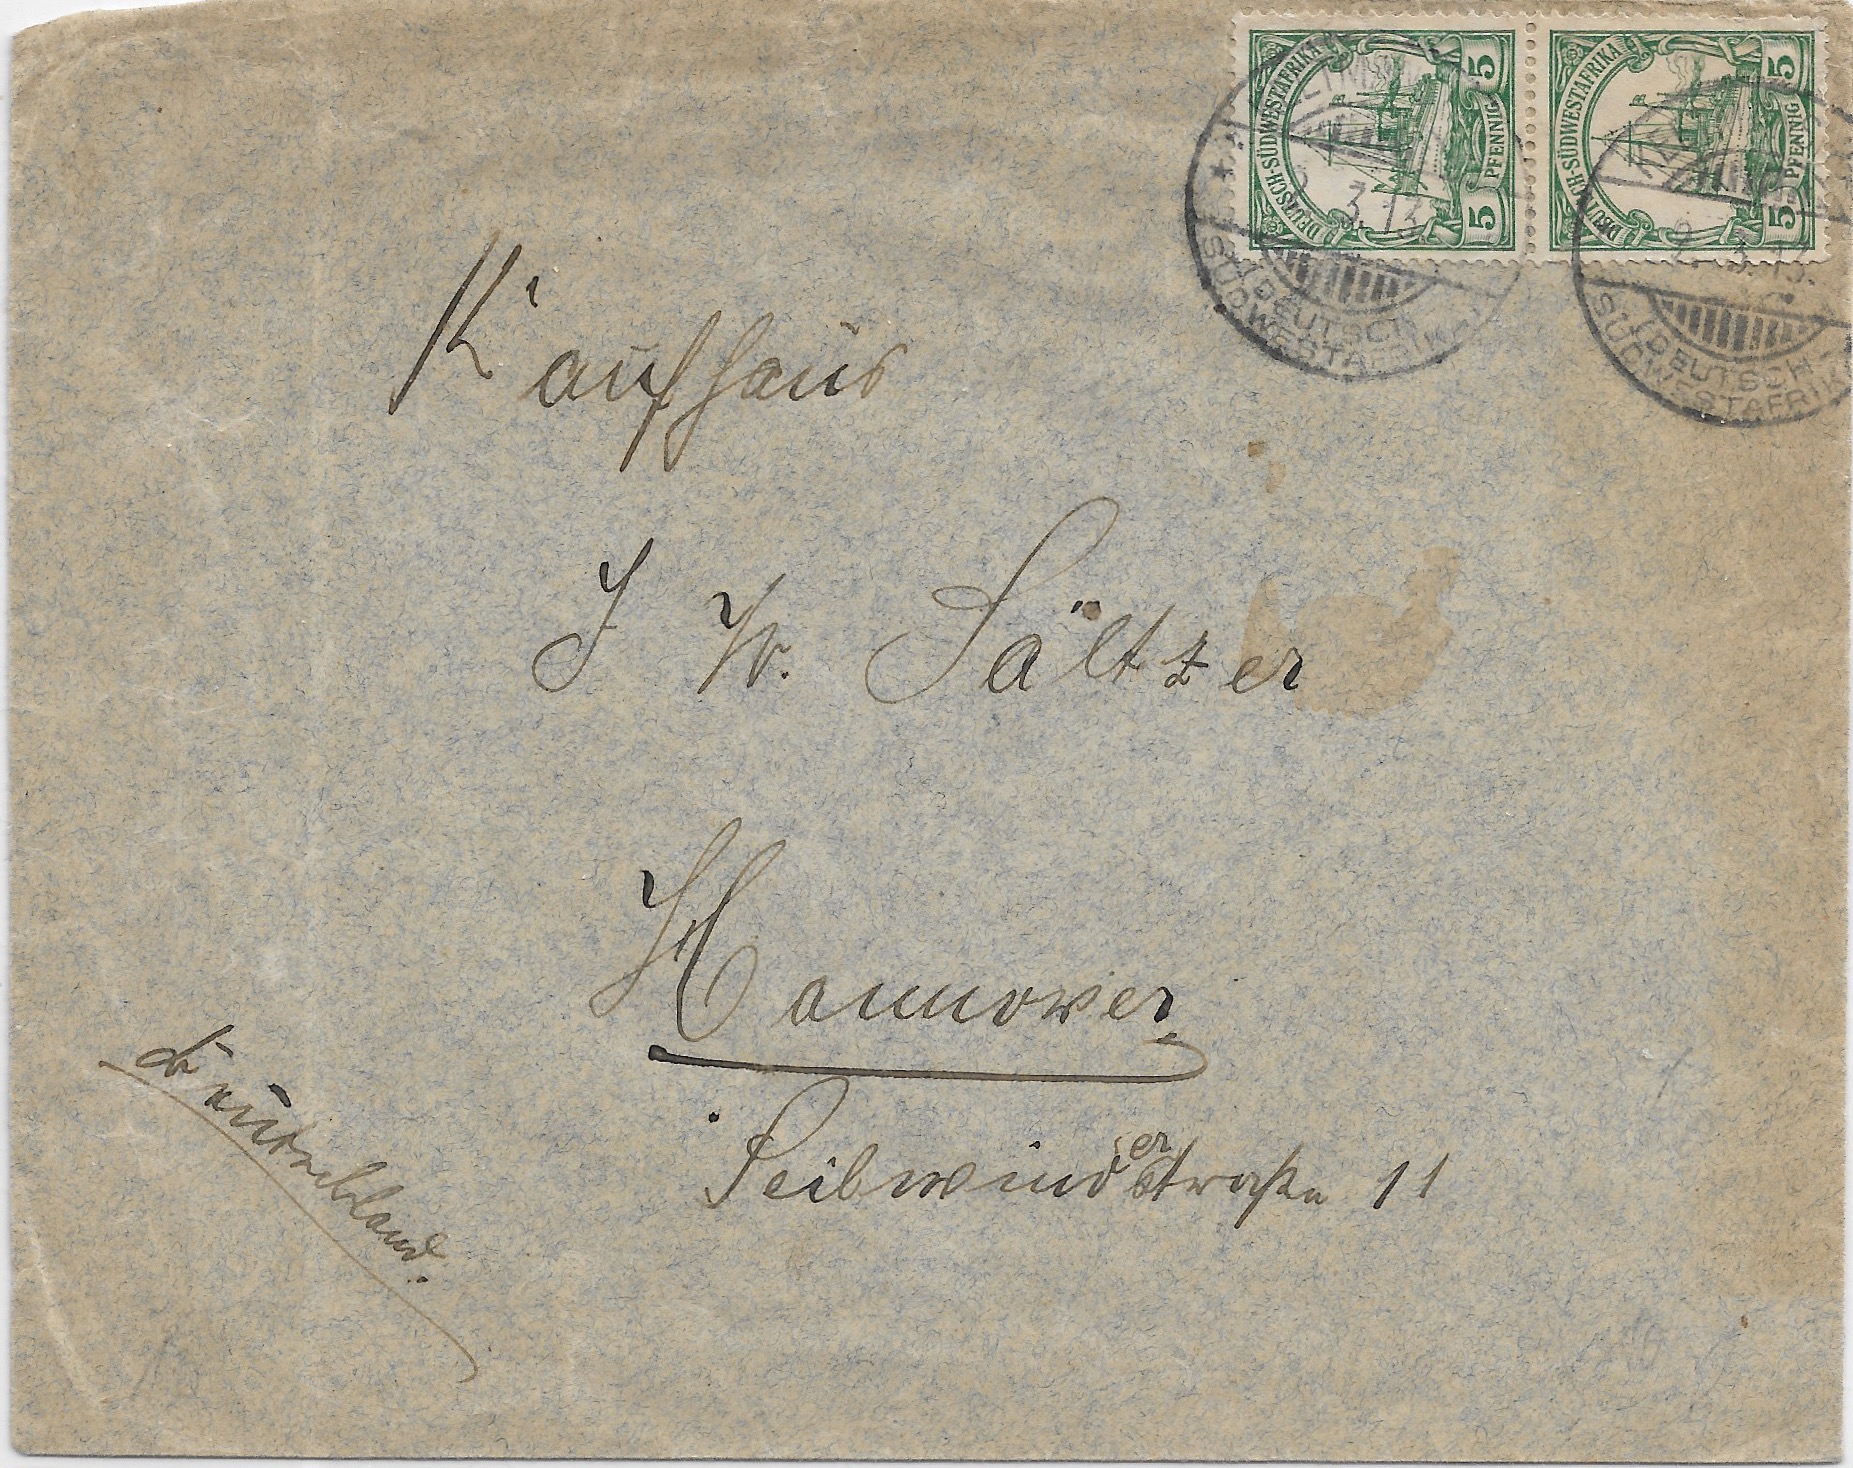 DEUTSCH-SÜDWESTAFRIKA
5 PFENNIG 5
DEUTSCH-SÜDWESTAFRIKA
5 PFENNIG 5
2.3.13.
(DEUTSCH-
SÜDWESTAFRIKA)
2.3.13.
(DEUTSCH-
SÜDWESTAFRIKA
Kaufhaus
J W. Sältzer
Hannover
Seilwinderstraße 11
Deutschland.